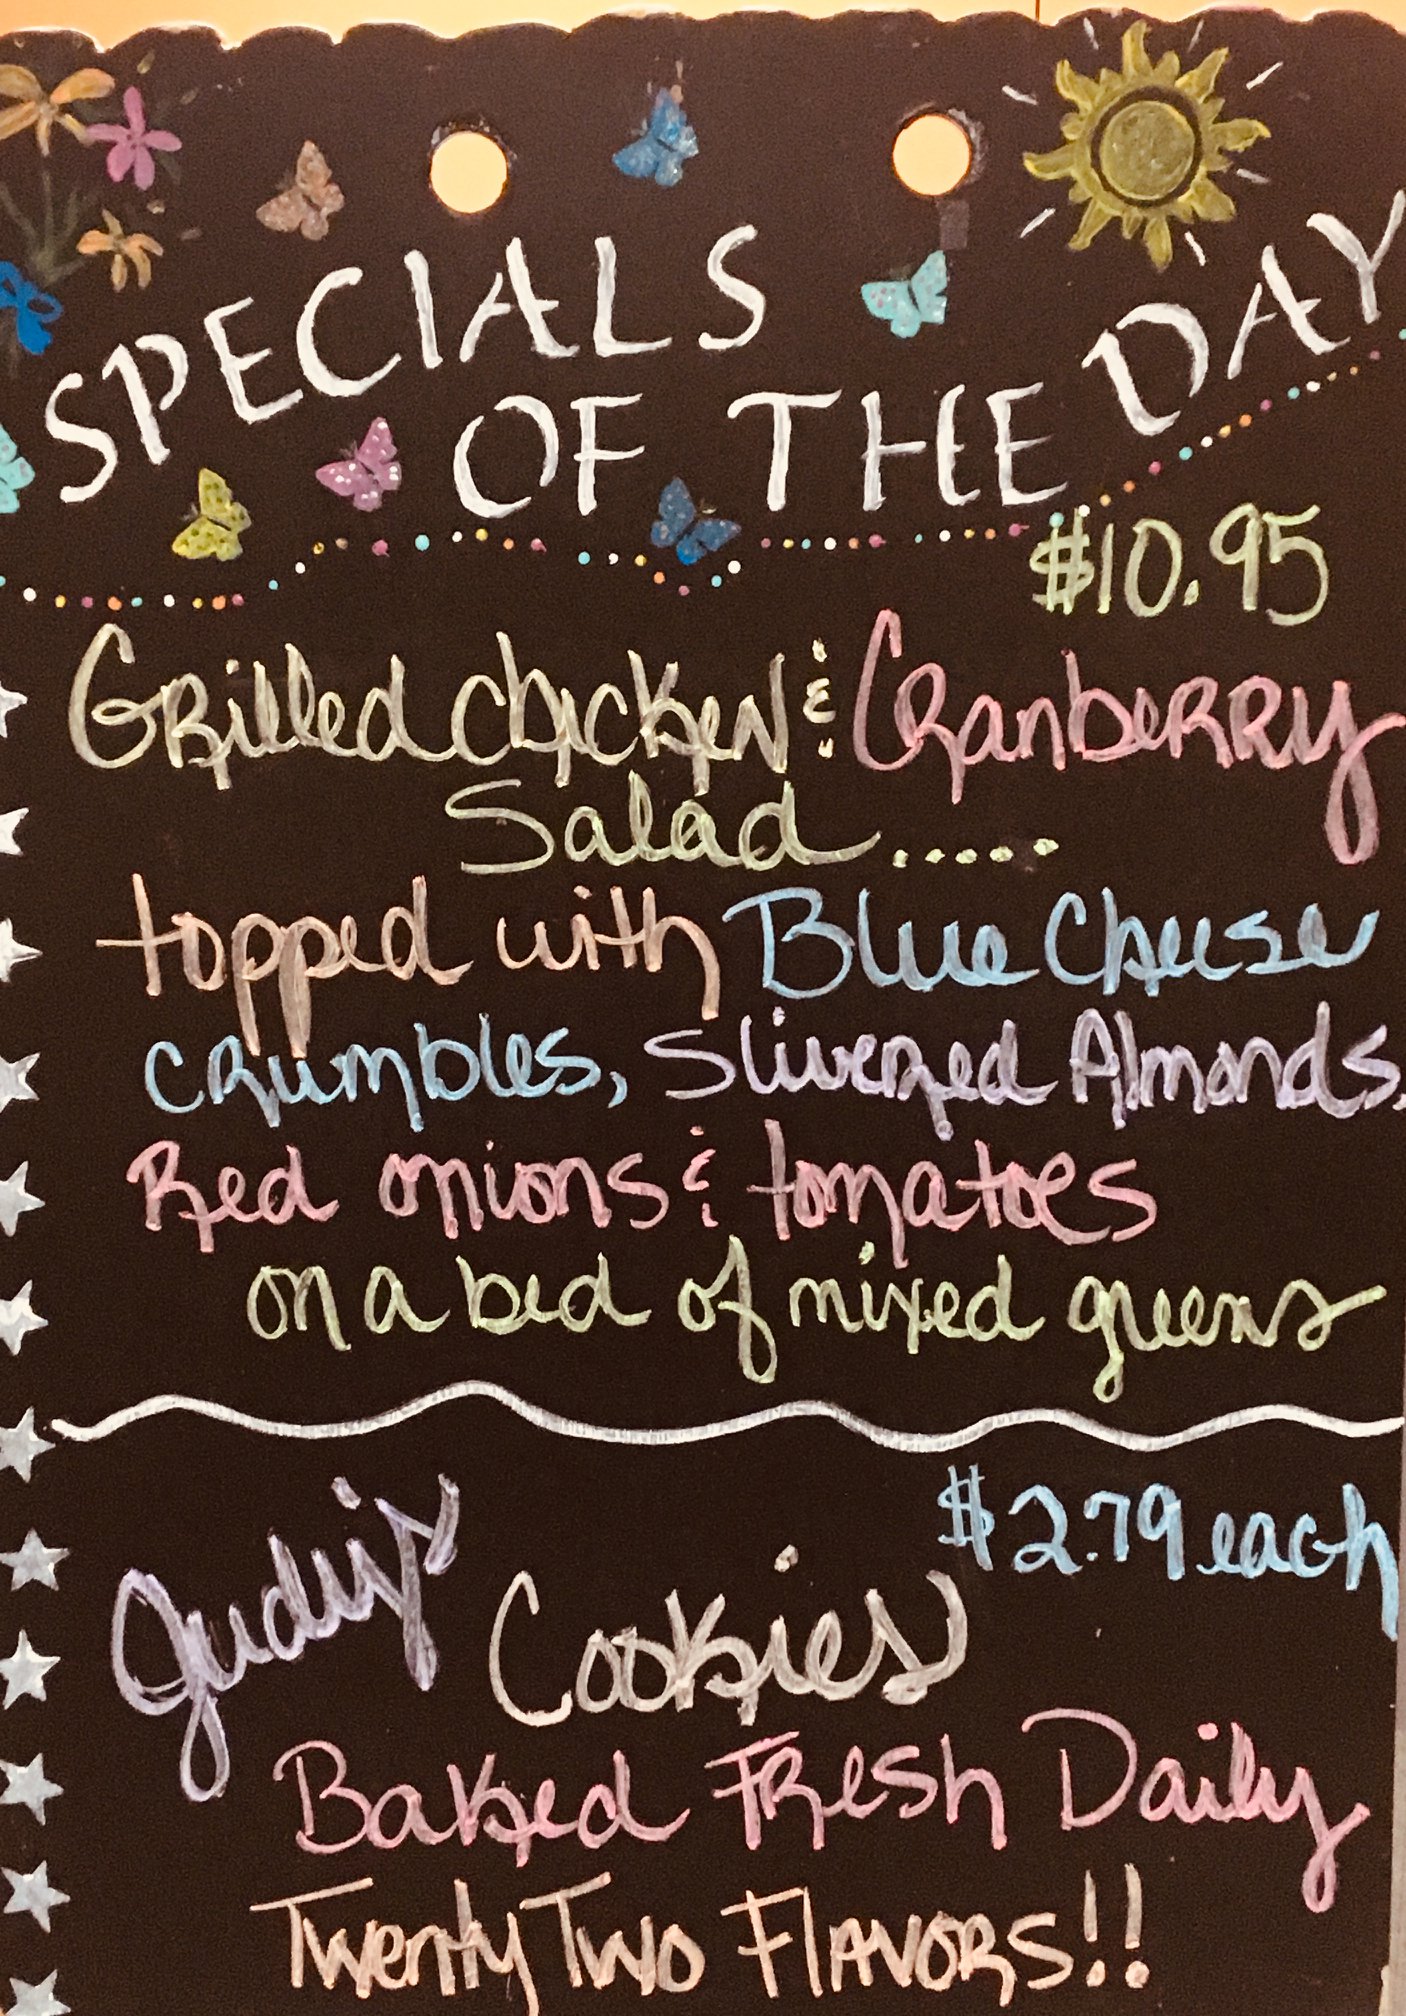 SPECIALS
OF THE DAY
$10.95
Grilled chicken & Cranberry
Salad.....
topped with Blue Cheese
crumbles, Slivered Almonds,
Red onions & tomatoes
on a bed of mixed greens
$2.79 each
Judy's
Cookies
Baked Fresh Daily
Twenty Two Flavors!!